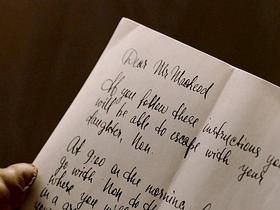 Dear Mr Mashood
If you follow these instructions you
will be able to escape with your
daughter, Non.
At 9:20 on the morning
go with Non to the
where you